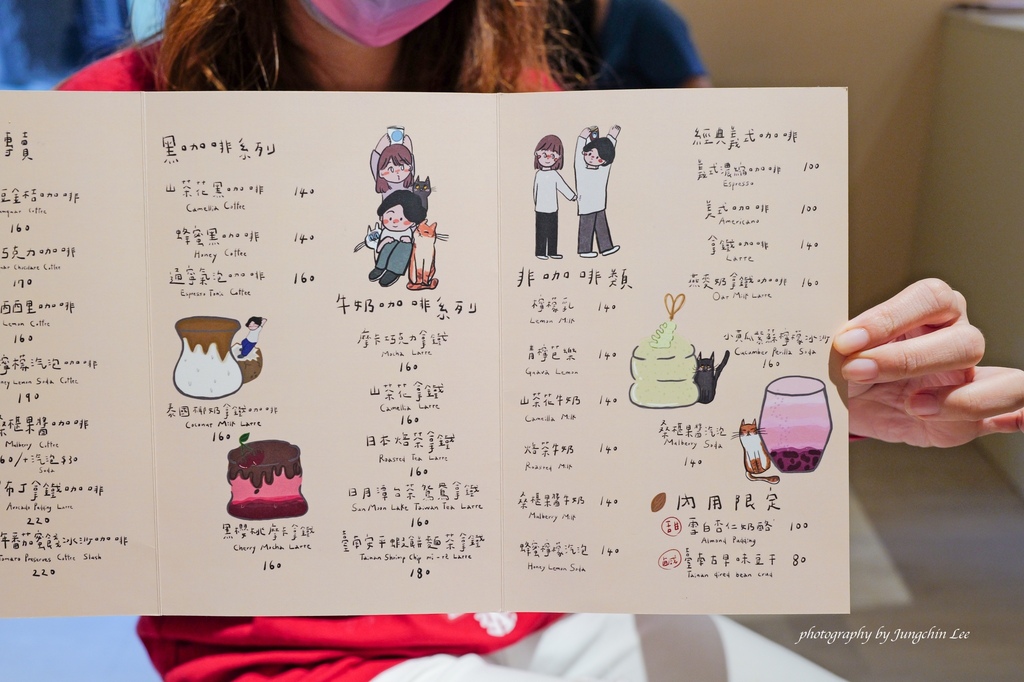 專賣
金桔咖啡
Coffee
160
巧克力咖啡
Chocolate Coffee
170
西西里咖啡
Lemon Coffee
160
檸檬汽泡咖啡
Honey Lemon Soda Coffee
190
桑椹果醬咖啡
Mulberry Coffee
160/+汽泡$30
Soda
布丁拿鐵咖啡
Avocado Pudding Latte
220
番茄蜜餞冰沙咖啡
Tomato Preserves Coffee Slush
220
黑咖啡系列
山茶花黑咖啡 140
Camellia Coffee
蜂蜜黑咖啡 140
Honey Coffee
通寧氣泡咖啡 160
Espresso Tonic Coffee
泰國椰奶拿鐵咖啡
Coconut Milk Latte
160
黑櫻桃摩卡拿鐵
Cherry Mocha Latte
160
牛奶咖啡系列
摩卡巧克力拿鐵
Mocha Latte
160
山茶花拿鐵
Camellia Latte
160
日本焙茶拿鐵
Roasted Tea Latte
160
日月潭台茶鴛鴦拿鐵
Sun Moon Lake Taiwan Tea Latte
160
臺南安平蝦餅麵茶拿鐵
Tainan Shrimp Chip mi-tê Latte
180
非咖啡類
檸檬乳 140
Lemon Milk
青檸芭樂 140
Guava Lemon
山茶花牛奶 140
Camellia Milk
焙茶牛奶 140
Roasted Milk
桑椹果醬牛奶 140
Mulberry Milk
蜂蜜檸檬汽泡 140
Honey Lemon Soda
經典義式咖啡
義式濃縮咖啡 100
Espresso
美式咖啡 100
Americano
拿鐵咖啡 140
Latte
燕麥奶拿鐵咖啡 160
Oat Milk Latte
小黃瓜紫蘇檸檬冰沙
Cucumber Perilla Soda
160
桑椹果醬汽泡
Mulberry Soda
140
內用限定
甜 雪白杏仁奶酪 100
Almond Pudding
鹹 臺南古早味豆干 80
Tainan dried bean curd
photography by Jungchin Lee